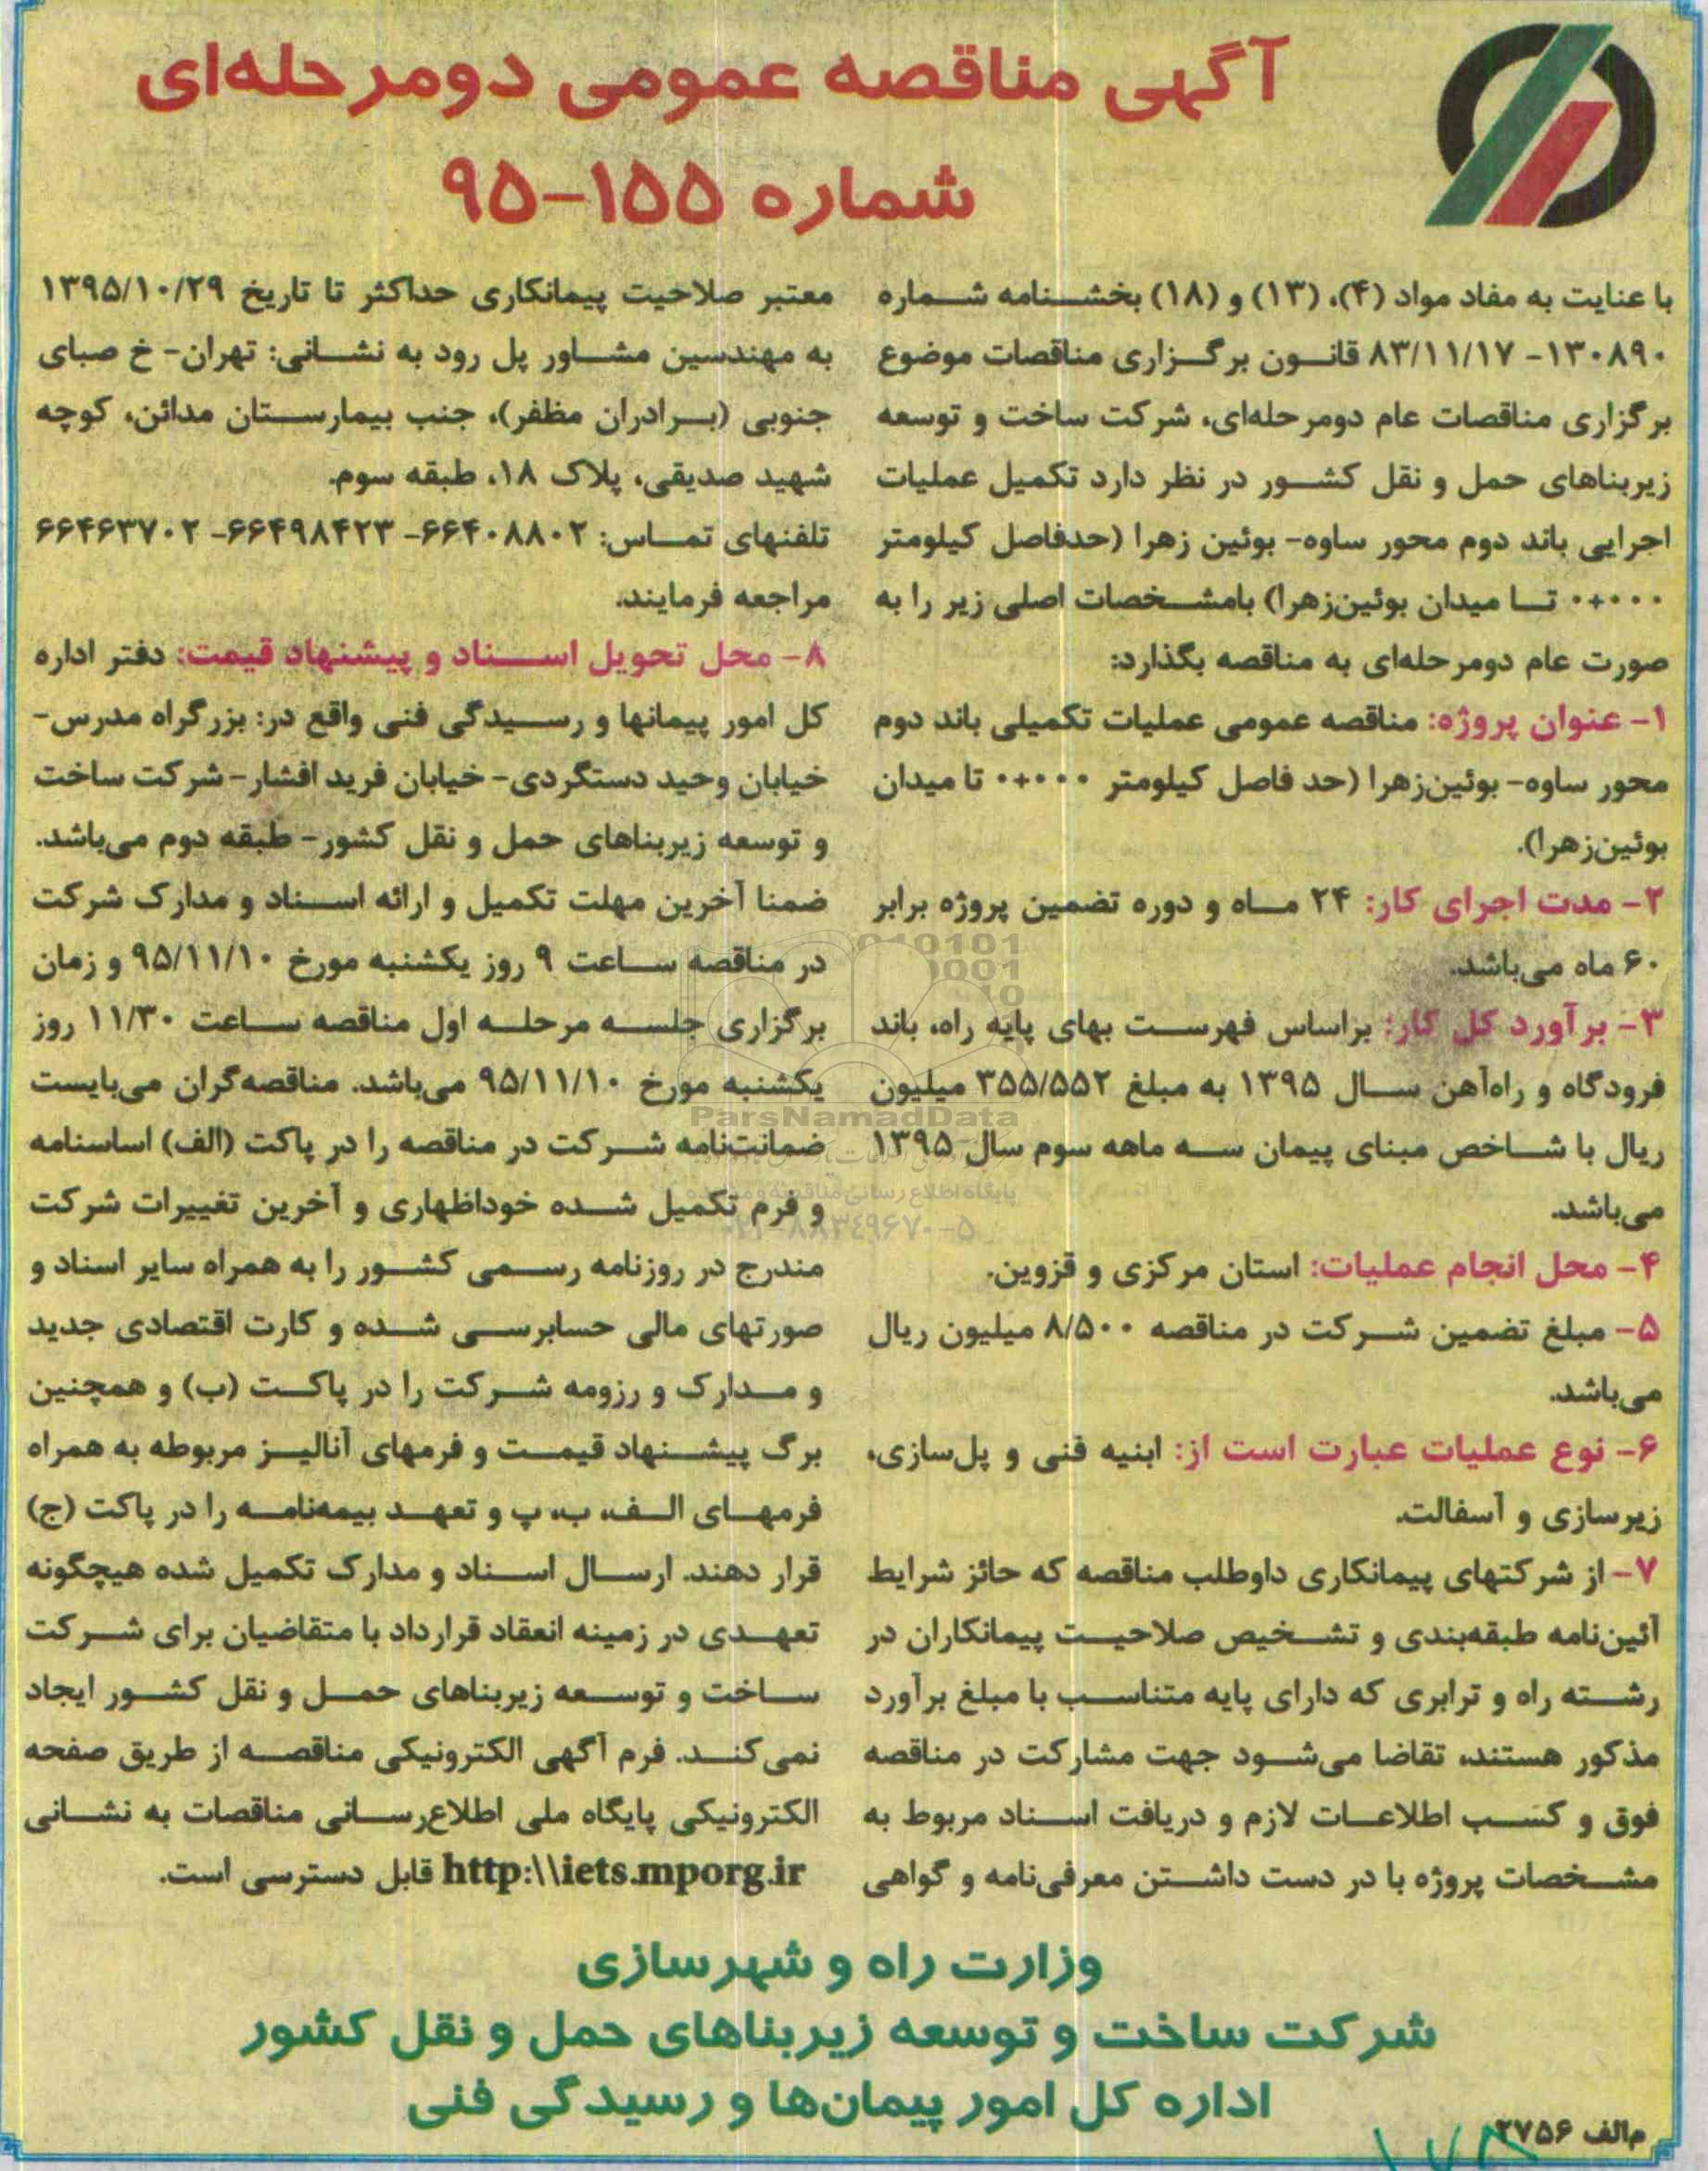 آگهی مناقصه عمومی دومرحله‌ای
شماره ۱۵۵-۹۵
با عنایت به مفاد مواد (۴)، (۱۳) و (۱۸) بخشنامه شماره
۱۳۰۸۹۰- ۸۳/۱۱/۱۷ قانون برگزاری مناقصات موضوع
برگزاری مناقصات عام دومرحله‌ای، شرکت ساخت و توسعه
زیربناهای حمل و نقل کشور در نظر دارد تکمیل عملیات
اجرایی باند دوم محور ساوه- بوئین زهرا (حدفاصل کیلومتر
۰+۰۰۰ تا میدان بوئین‌زهرا) بامشخصات اصلی زیر را به
صورت عام دومرحله‌ای به مناقصه بگذارد:
۱- عنوان پروژه: مناقصه عمومی عملیات تکمیلی باند دوم
محور ساوه- بوئین‌زهرا (حد فاصل کیلومتر ۰+۰۰۰ تا میدان
بوئین‌زهرا).
۲- مدت اجرای کار: ۲۴ ماه و دوره تضمین پروژه برابر
۶۰ ماه می‌باشد.
۳- برآورد کل کار: براساس فهرست بهای پایه راه، باند
فرودگاه و راه‌آهن سال ۱۳۹۵ به مبلغ ۳۵۵/۵۵۲ میلیون
ریال با شاخص مبنای پیمان سه ماهه سوم سال ۱۳۹۵
می‌باشد.
۴- محل انجام عملیات: استان مرکزی و قزوین.
۵- مبلغ تضمین شرکت در مناقصه ۸/۵۰۰ میلیون ریال
می‌باشد.
۶- نوع عملیات عبارت است از: ابنیه فنی و پل‌سازی،
زیرسازی و آسفالت.
۷- از شرکتهای پیمانکاری داوطلب مناقصه که حائز شرایط
آئین‌نامه طبقه‌بندی و تشخیص صلاحیت پیمانکاران در
رشته راه و ترابری که دارای پایه متناسب با مبلغ برآورد
مذکور هستند، تقاضا می‌شود جهت مشارکت در مناقصه
فوق و کسب اطلاعات لازم و دریافت اسناد مربوط به
مشخصات پروژه با در دست داشتن معرفی‌نامه و گواهی
معتبر صلاحیت پیمانکاری حداکثر تا تاریخ ۱۳۹۵/۱۰/۲۹
به مهندسین مشاور پل رود به نشانی: تهران- خ صبای
جنوبی (برادران مظفر)، جنب بیمارستان مدائن، کوچه
شهید صدیقی، پلاک ۱۸، طبقه سوم.
تلفنهای تماس: ۶۶۴۰۸۸۰۲- ۶۶۴۹۸۴۲۳- ۶۶۴۶۳۷۰۲
مراجعه فرمایند.
۸- محل تحویل اسناد و پیشنهاد قیمت: دفتر اداره
کل امور پیمانها و رسیدگی فنی واقع در: بزرگراه مدرس-
خیابان وحید دستگردی- خیابان فرید افشار- شرکت ساخت
و توسعه زیربناهای حمل و نقل کشور- طبقه دوم می‌باشد.
ضمنا آخرین مهلت تکمیل و ارائه اسناد و مدارک شرکت
در مناقصه ساعت ۹ روز یکشنبه مورخ ۹۵/۱۱/۱۰ و زمان
برگزاری جلسه مرحله اول مناقصه ساعت ۱۱/۳۰ روز
یکشنبه مورخ ۹۵/۱۱/۱۰ می‌باشد. مناقصه‌گران می‌بایست
ضمانت‌نامه شرکت در مناقصه را در پاکت (الف) اساسنامه
و فرم تکمیل شده خوداظهاری و آخرین تغییرات شرکت
مندرج در روزنامه رسمی کشور را به همراه سایر اسناد و
صورتهای مالی حسابرسی شده و کارت اقتصادی جدید
و مدارک و رزومه شرکت را در پاکت (ب) و همچنین
برگ پیشنهاد قیمت و فرمهای آنالیز مربوطه به همراه
فرمهای الف، ب، پ و تعهد بیمه‌نامه را در پاکت (ج)
قرار دهند. ارسال اسناد و مدارک تکمیل شده هیچگونه
تعهدی در زمینه انعقاد قرارداد با متقاضیان برای شرکت
ساخت و توسعه زیربناهای حمل و نقل کشور ایجاد
نمی‌کند. فرم آگهی الکترونیکی مناقصه از طریق صفحه
الکترونیکی پایگاه ملی اطلاع‌رسانی مناقصات به نشانی
http:\\iets.mporg.ir قابل دسترسی است.
ParsNamadData
وزارت راه و شهرسازی
شرکت ساخت و توسعه زیربناهای حمل و نقل کشور
اداره کل امور پیمان‌ها و رسیدگی فنی
م‌الف ۲۷۵۶